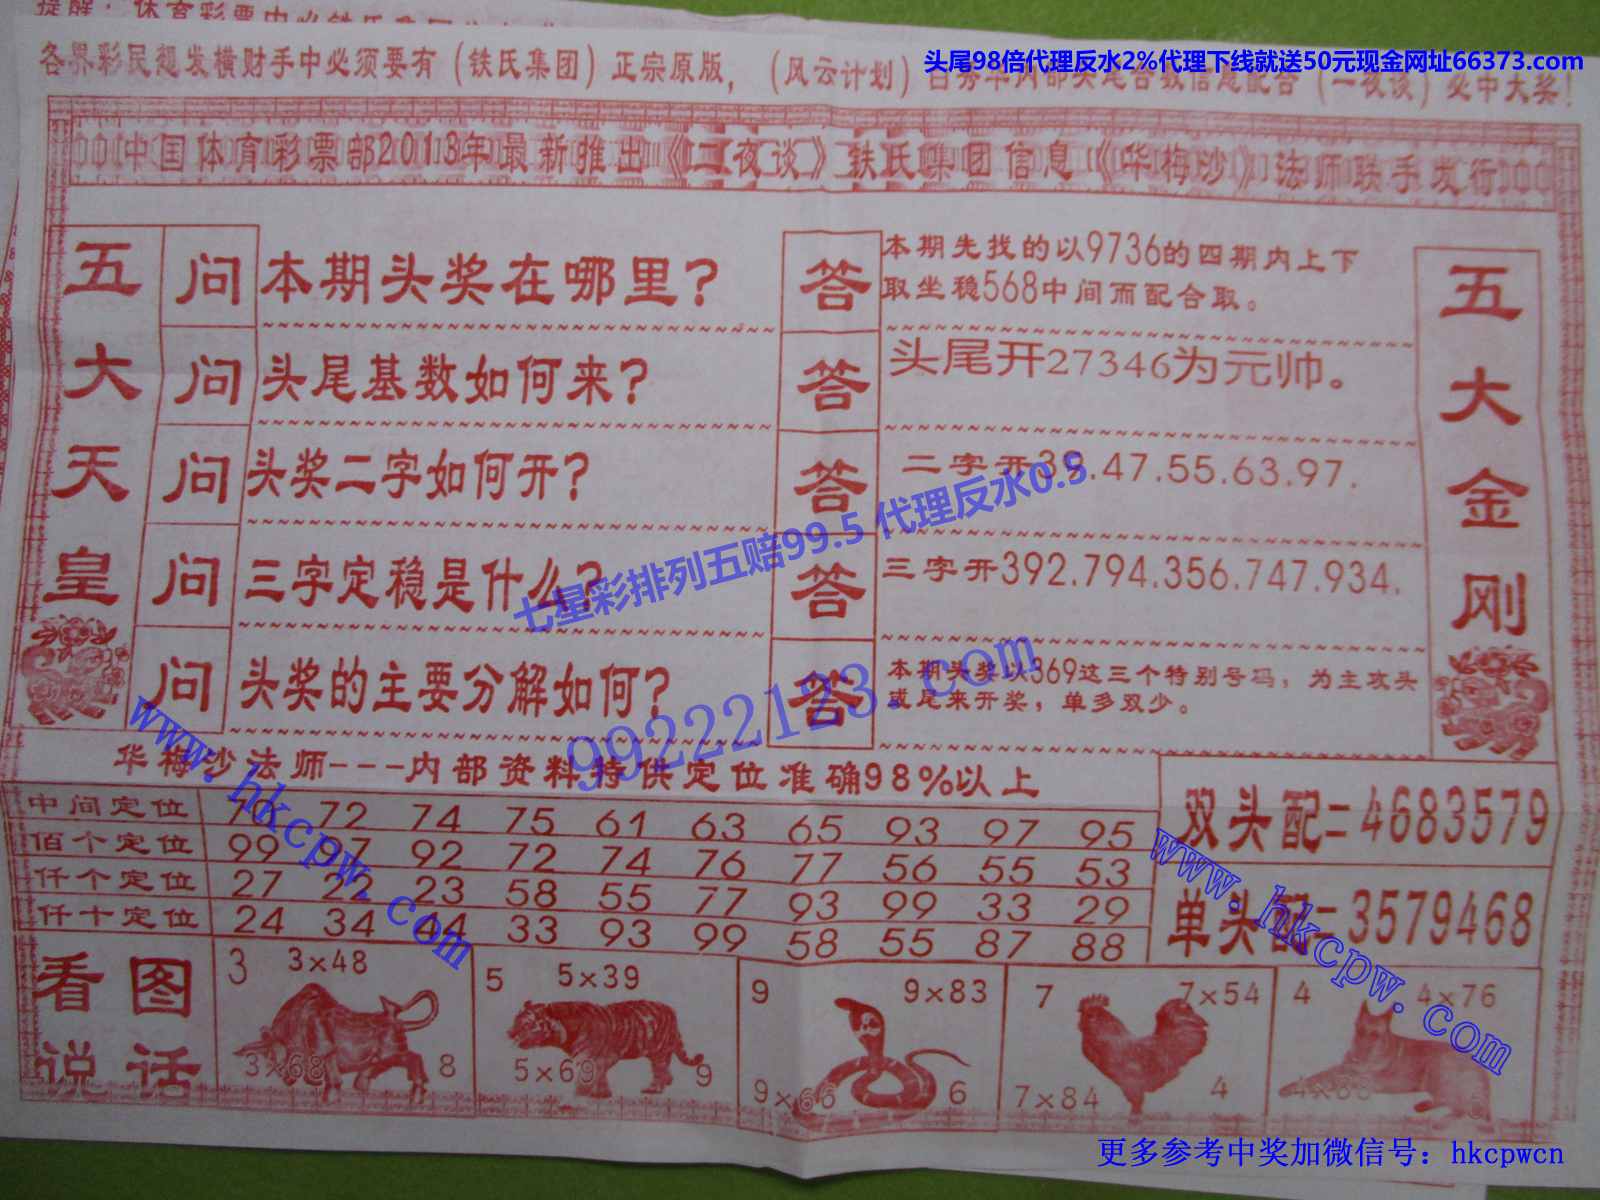 提醒：体育彩票中心铁氏集团
头尾98倍代理反水2%代理下线就送50元现金网址66373.com
各界彩民想发横财手中必须要有（铁氏集团）正宗原版，（风云计划）必中大奖！
中国体育彩票部2013年最新推出《二夜谈》铁氏集团信息《华梅沙》法师联手发行
五大天皇
问 本期头奖在哪里？
答 本期先找的以9736的四期内上下
取坐稳568中间而配合取。
问 头尾基数如何来？
答 头尾开27346为元帅。
问 头奖二字如何开？
答 二字开39.47.55.63.97.
问 三字定稳是什么？
答 三字开392.794.356.747.934.
问 头奖的主要分解如何？
答 本期头奖以369这三个特别号码，为主攻头
或尾来开奖，单多双少。
五大金刚
七星彩排列五赔99.5 代理反水0.5
99222123.com
www.hkcpw.com
华梅沙法师---内部资料特供定位准确98%以上
中间定位 70 72 74 75 61 63 65 93 97 95
佰个定位 99 97 92 72 74 76 77 56 55 53
仟个定位 27 22 23 58 55 77 93 99 33 29
仟十定位 24 34 44 33 93 99 58 55 87 88
双头配=4683579
单头配=3579468
www.hkcpw.com
看图说话
3 3×48
3×68 8
5 5×39
5×69 9
9 9×83
9×66 6
7 7×54
7×84 4
4 4×76
更多参考中奖加微信号：hkcpwcn